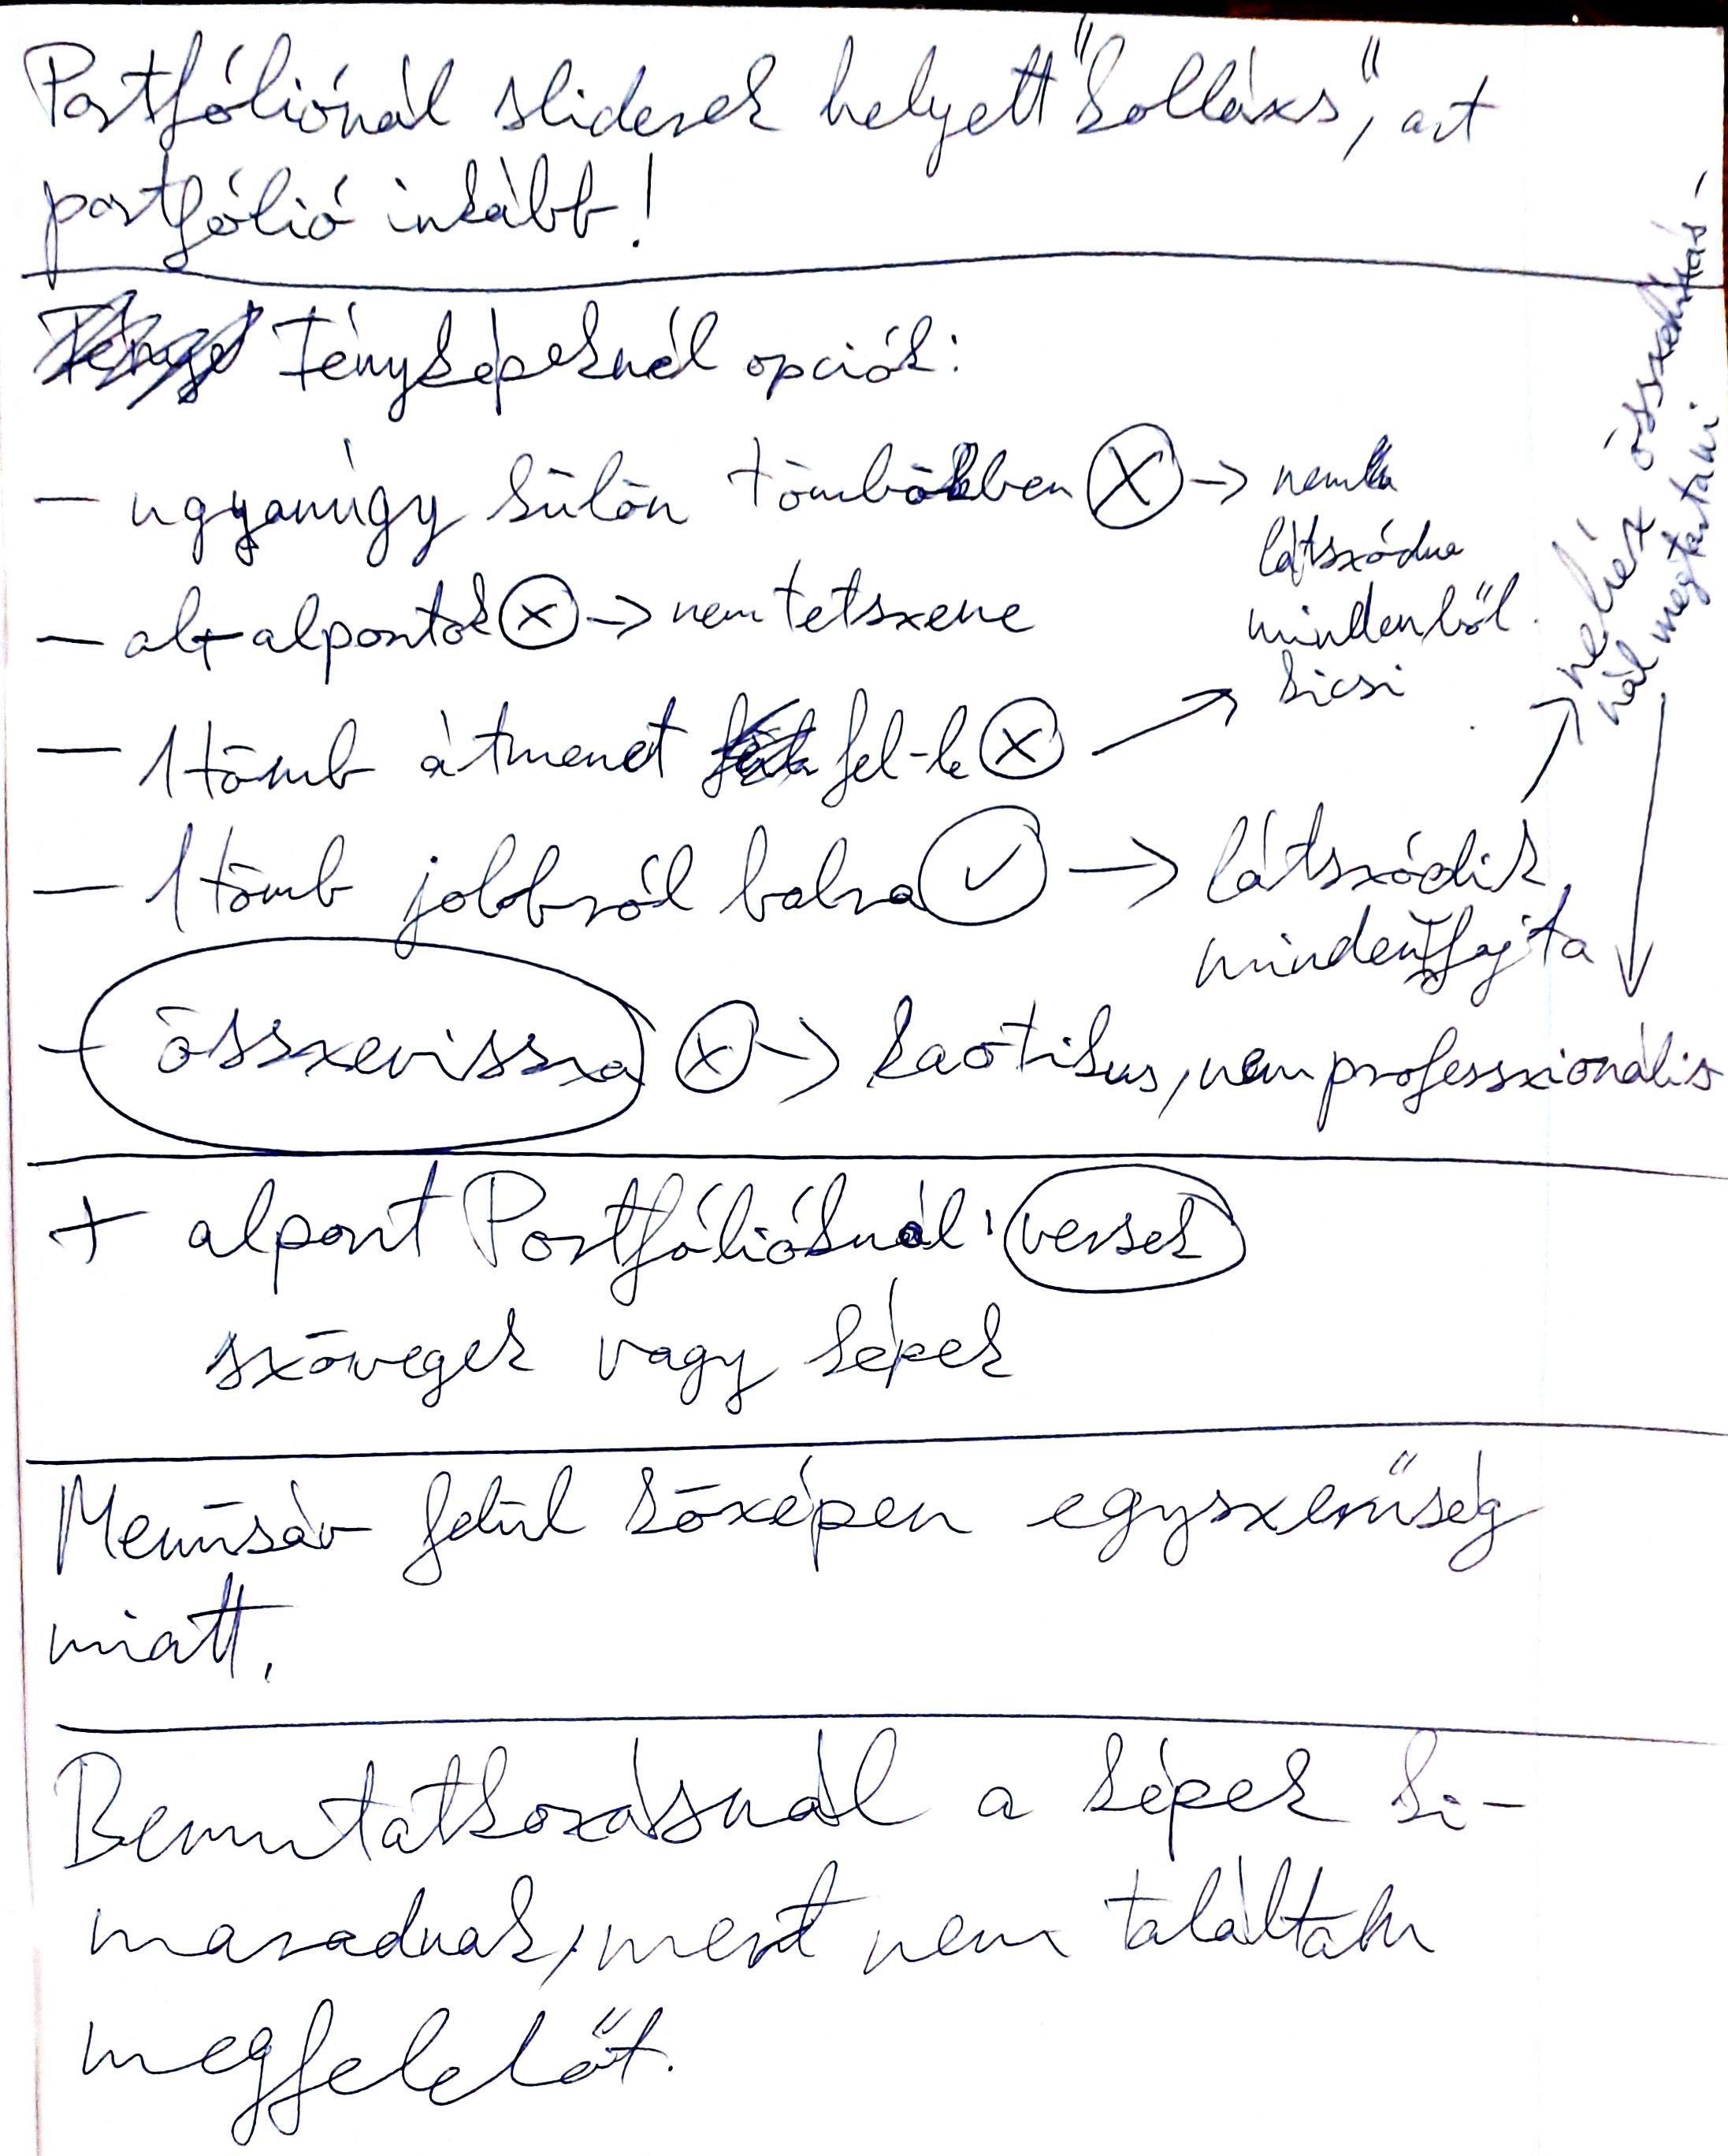 Portfóliónál sliderek helyett "kollázs", art
portfólió inkább!
Fényképeknél opciók:
- ugyanúgy külön tömbökben ⓧ -> nem
látszódna
mindenből
kicsi
- alt alpontok ⓧ -> nem tetszene
- 1 tömb átmenet fel-le ⓧ ->
- 1 tömb jobbról balra ✓ -> látszódik
mindenfajta
nehéz összehatás-
nál megtartani
- összevissza ⓧ -> kaotikus, nem professzionális
+ alpont Portfólióknál: versek
szövegek vagy képek
Menüsáv felül középen egyszerűség
miatt.
Bemutatkozásnál a képek ki-
maradnak, mert nem találtam
megfelelőt.